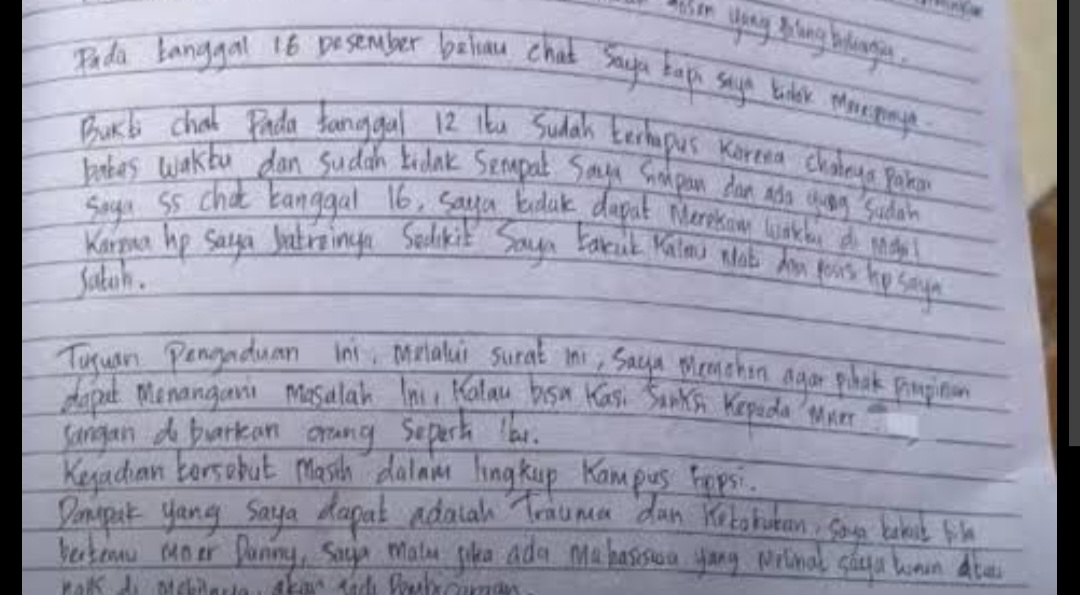 dosen yang bilang
Pada tanggal 16 Desember beliau chat saya tapi saya tidak meresponnya.
Bukti chat Pada tanggal 12 itu Sudah terhapus Karena chatnya Pakai
batas waktu dan sudah tidak Sempat Saya Simpan dan ada yang Sudah
saya ss chat tanggal 16, saya tidak dapat Merekam waktu di mobil
Karena hp saya batreinya Sedikit Saya takut Kalau Mati dan posis hp saya
Jatuh.
Tujuan Pengaduan ini, Melalui surat ini, Saya Memohon agar pihak Pimpinan
dapat Menangani Masalah Ini, Kalau bisa Kasi Sanksi Kepada Mner
Jangan di biarkan orang Seperti itu.
Kejadian tersebut Masih dalam lingkup Kampus
Dampak yang Saya dapat adalah Trauma dan Ketakutan, Saya takut bila
bertemu Mner Danny, saya Malu jika ada Mahasiswa yang Melihat saya turun atau
naik di Mobilnya, akan jadi Pembicaraan.